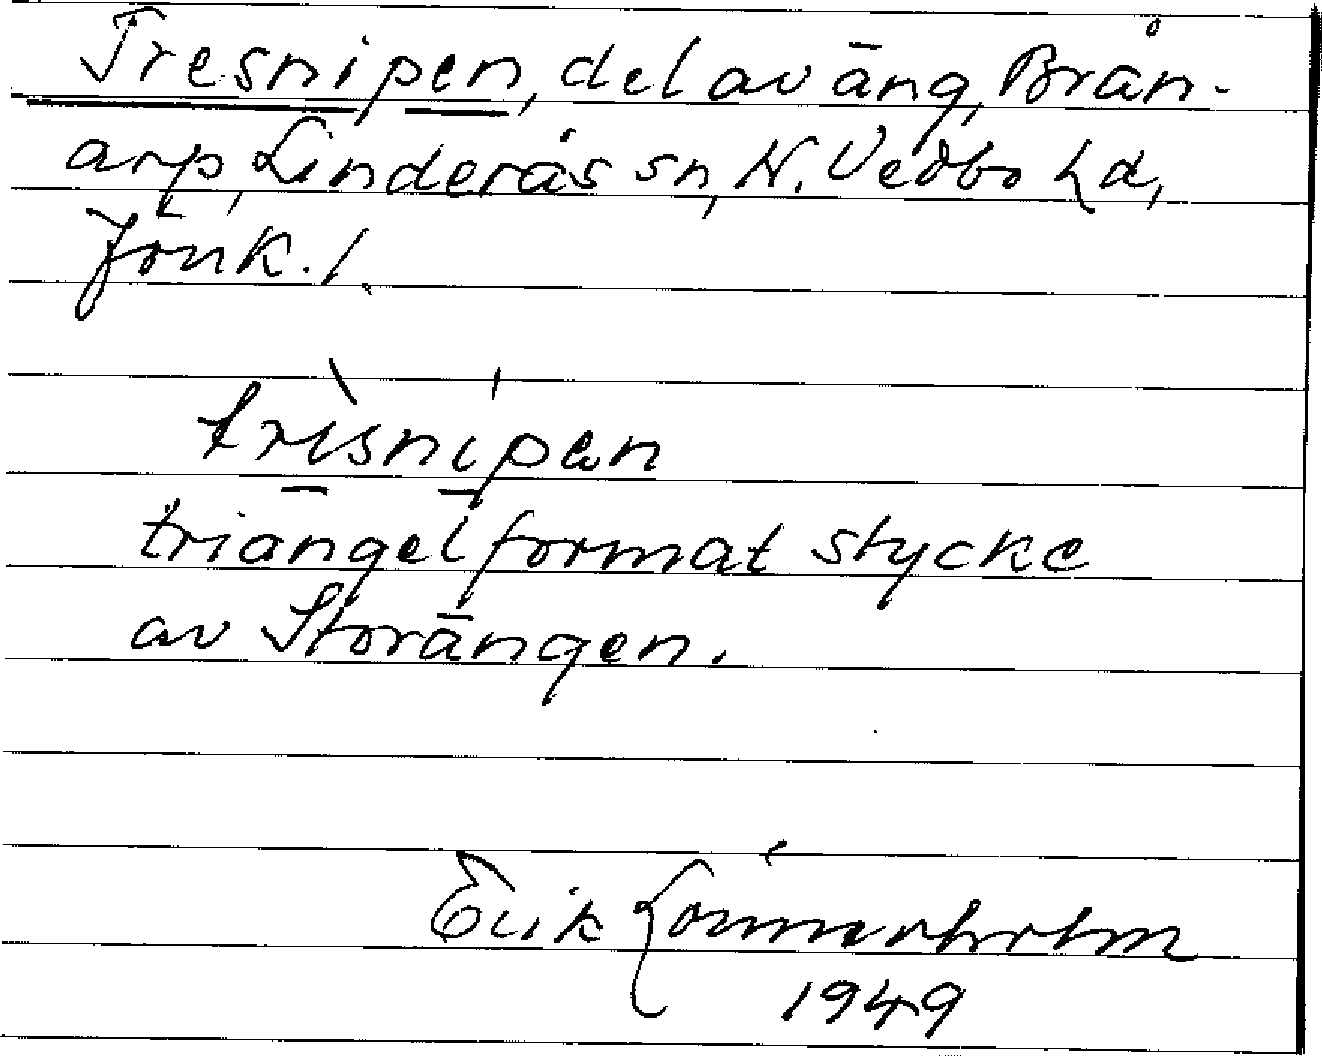 Tresnipen, del av äng, Brån-
arp, Linderås sn, N. Vedbo hd,
Jönk. l.
trìsnípen
triangelformat stycke
av Storängen.
Erik Lönnerholm
1949